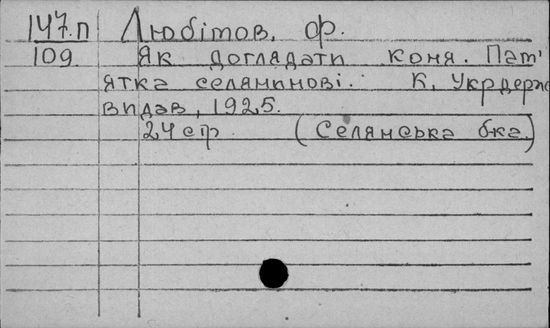 147.п Любітов, Ф.
109. Як доглядати коня. Пам'
ятка селянинові. К, Укрдерж
видав, 1925.
24 стр. (Селянська б-ка.)